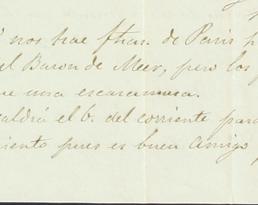 nos trae fhas. de Paris
el Baron de Meer, pero los
que una escaramusa.
saldrá el 6. del corriente para
miento pues es buen amigo